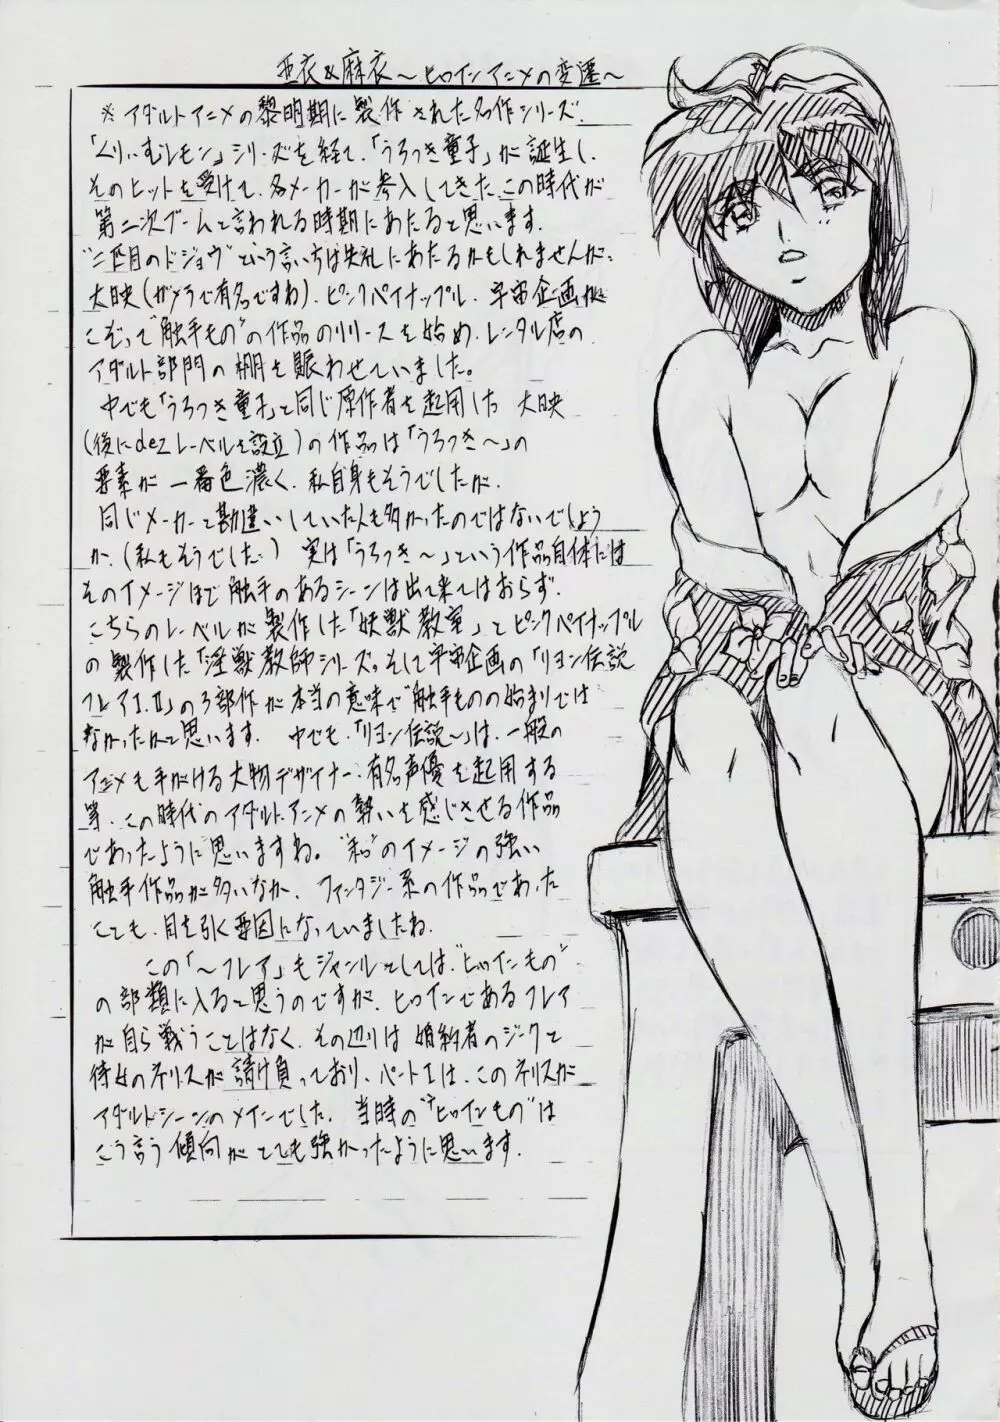 亜衣&麻衣～ヒロインアニメの変遷～
※アダルトアニメの黎明期に製作された名作シリーズ.
「くりぃむレモン」シリーズを経て、「うろつき童子」が誕生し、
そのヒットを受けて、各メーカーが参入してきたこの時代が
第二次ブームと言われる時期にあたると思います.
"二匹目のドジョウ"という言い方は失礼にあたるかもしれませんが、
大映(ガメラで有名ですね)、ピンクパイナップル、宇宙企画が
こぞって"触手もの"の作品のリリースを始め、レンタル店の
アダルト部門の棚を賑わせていました。
中でも「うろつき童子」と同じ原作者を起用した 大映
(後にdezレーベルを設立)の作品は「うろつき～」の
要素が 一番色濃く、私自身もそうでしたが、
同じメーカーと勘違いしていた人も多かったのではないでしょう
か、(私もそうでした…) 実は「うろつき～」という作品自体には
そのイメージほど触手のあるシーンは出て来てはおらず、
こちらのレーベルが製作した「妖獣教室」とピンクパイナップル
の製作した「淫獣教師シリーズ。そして宇宙企画の「リヨン伝説
フレアⅠ.Ⅱ」の3部作が本当の意味で触手ものの始まりでは
なかったかと思います. 中でも、「リヨン伝説～」は、一般の
アニメも手がける大物デザイナー、有名声優を起用する
等、この時代のアダルトアニメの勢いを感じさせる作品
であったように思いますね。"和"のイメージの強い
触手作品が多いなか、ファンタジー系の作品であった
ことも、目を引く要因になっていましたね.
この「～フレア」もジャンルとしては、"ヒロインもの"
の部類に入ると思うのですが、ヒロインであるフレア
が自ら戦うことはなく、その辺りは 婚約者のジークと
侍女のネリスが請け負っており、パートⅠは、このネリスが
アダルトシーンのメインでした. 当時の"ヒロインもの"は
こう言う傾向がとても強かったように思います.